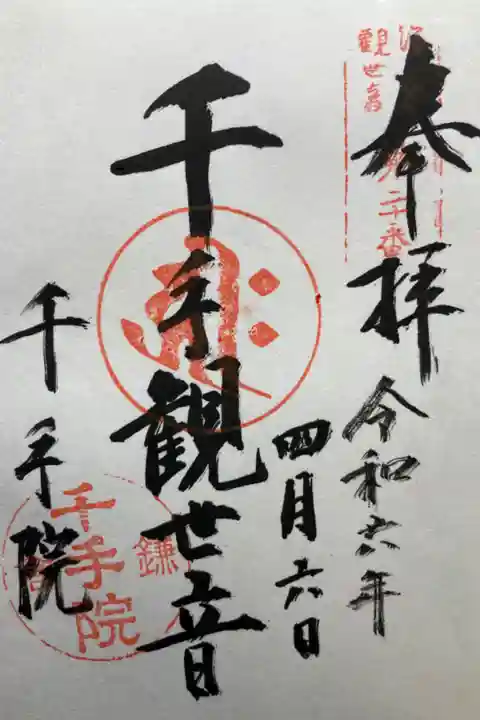 奉拝
令和六年
四月六日
千手観世音
千手院
観世音
第二十番
千手院
鎌